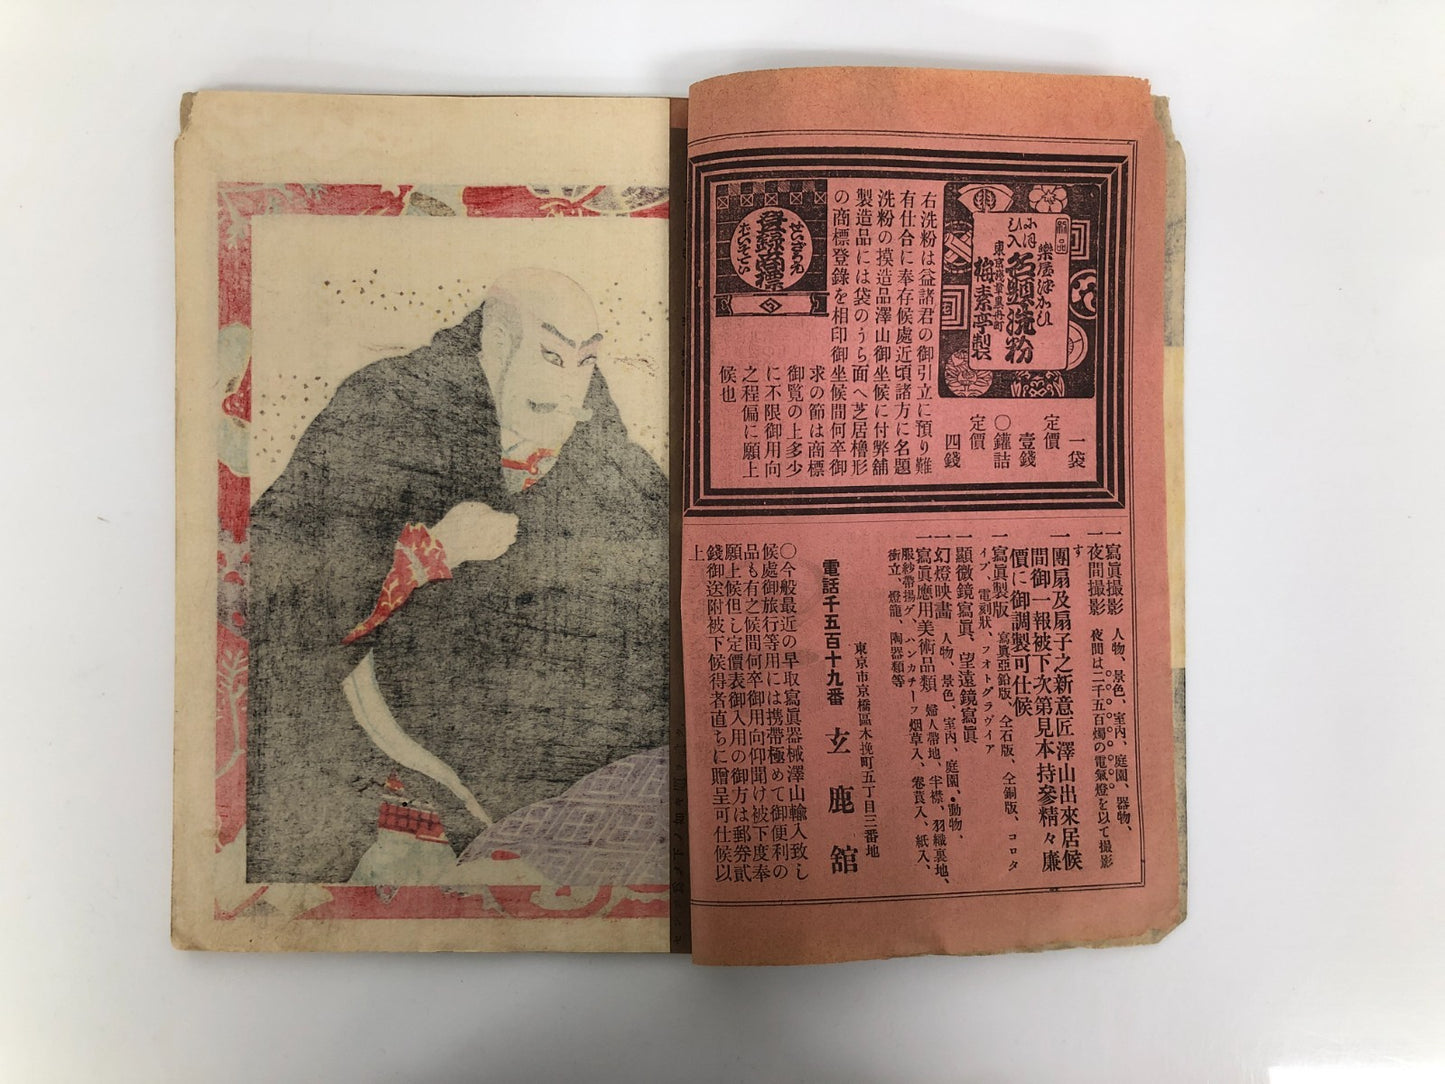 新品
樂屋ぼかひ
にほひ入
名題洗粉
東京芝區
梅素亭製
一袋
定價
壹錢
〇鑵詰
定價
四錢
右洗粉は益諸君の御引立に預り難
有仕合に奉存候處近頃諸方に名題
洗粉の摸造品澤山御坐候に付弊舖
製造品には袋のうら面へ芝居櫓形
の商標登錄を相印御坐候間何卒御
求の節は商標
御覧の上多少
に不限御用向
之程偏に願上
候也
登錄商標
一寫眞撮影 人物、景色、室内、庭園、器物、
一夜間撮影 夜間は二千五百燭の電氣燈を以て撮影
す
一團扇及扇子之新意匠澤山出來居候
間御一報被下次第見本持參精々廉
價に御調製可仕候
一寫眞製版 寫眞亞鉛版、仝石版、仝銅版、コロタ
イプ、電刻狀、フオトグラヴイア
一顯微鏡寫眞、望遠鏡寫眞
一幻燈映畵 人物、景色、室内、庭園、動物、
一寫眞應用美術品類 婦人帶地、半襟、羽織裏地、
服紗帶揚ゲ、ハンカチーフ烟草入、卷莨入、紙入、
衝立、燈籠、陶器類等
東京市京橋區木挽町五丁目三番地
電話千五百十九番 玄鹿舘
〇今般最近の早取寫眞器械澤山輸入致し
候處御旅行等用には携帶極めて御便利の
品も有之候間何卒御用向仰聞け被下度奉
願上候但し定價表御入用の御方は郵券貳
錢御送附被下候得者直ちに贈呈可仕候以
上